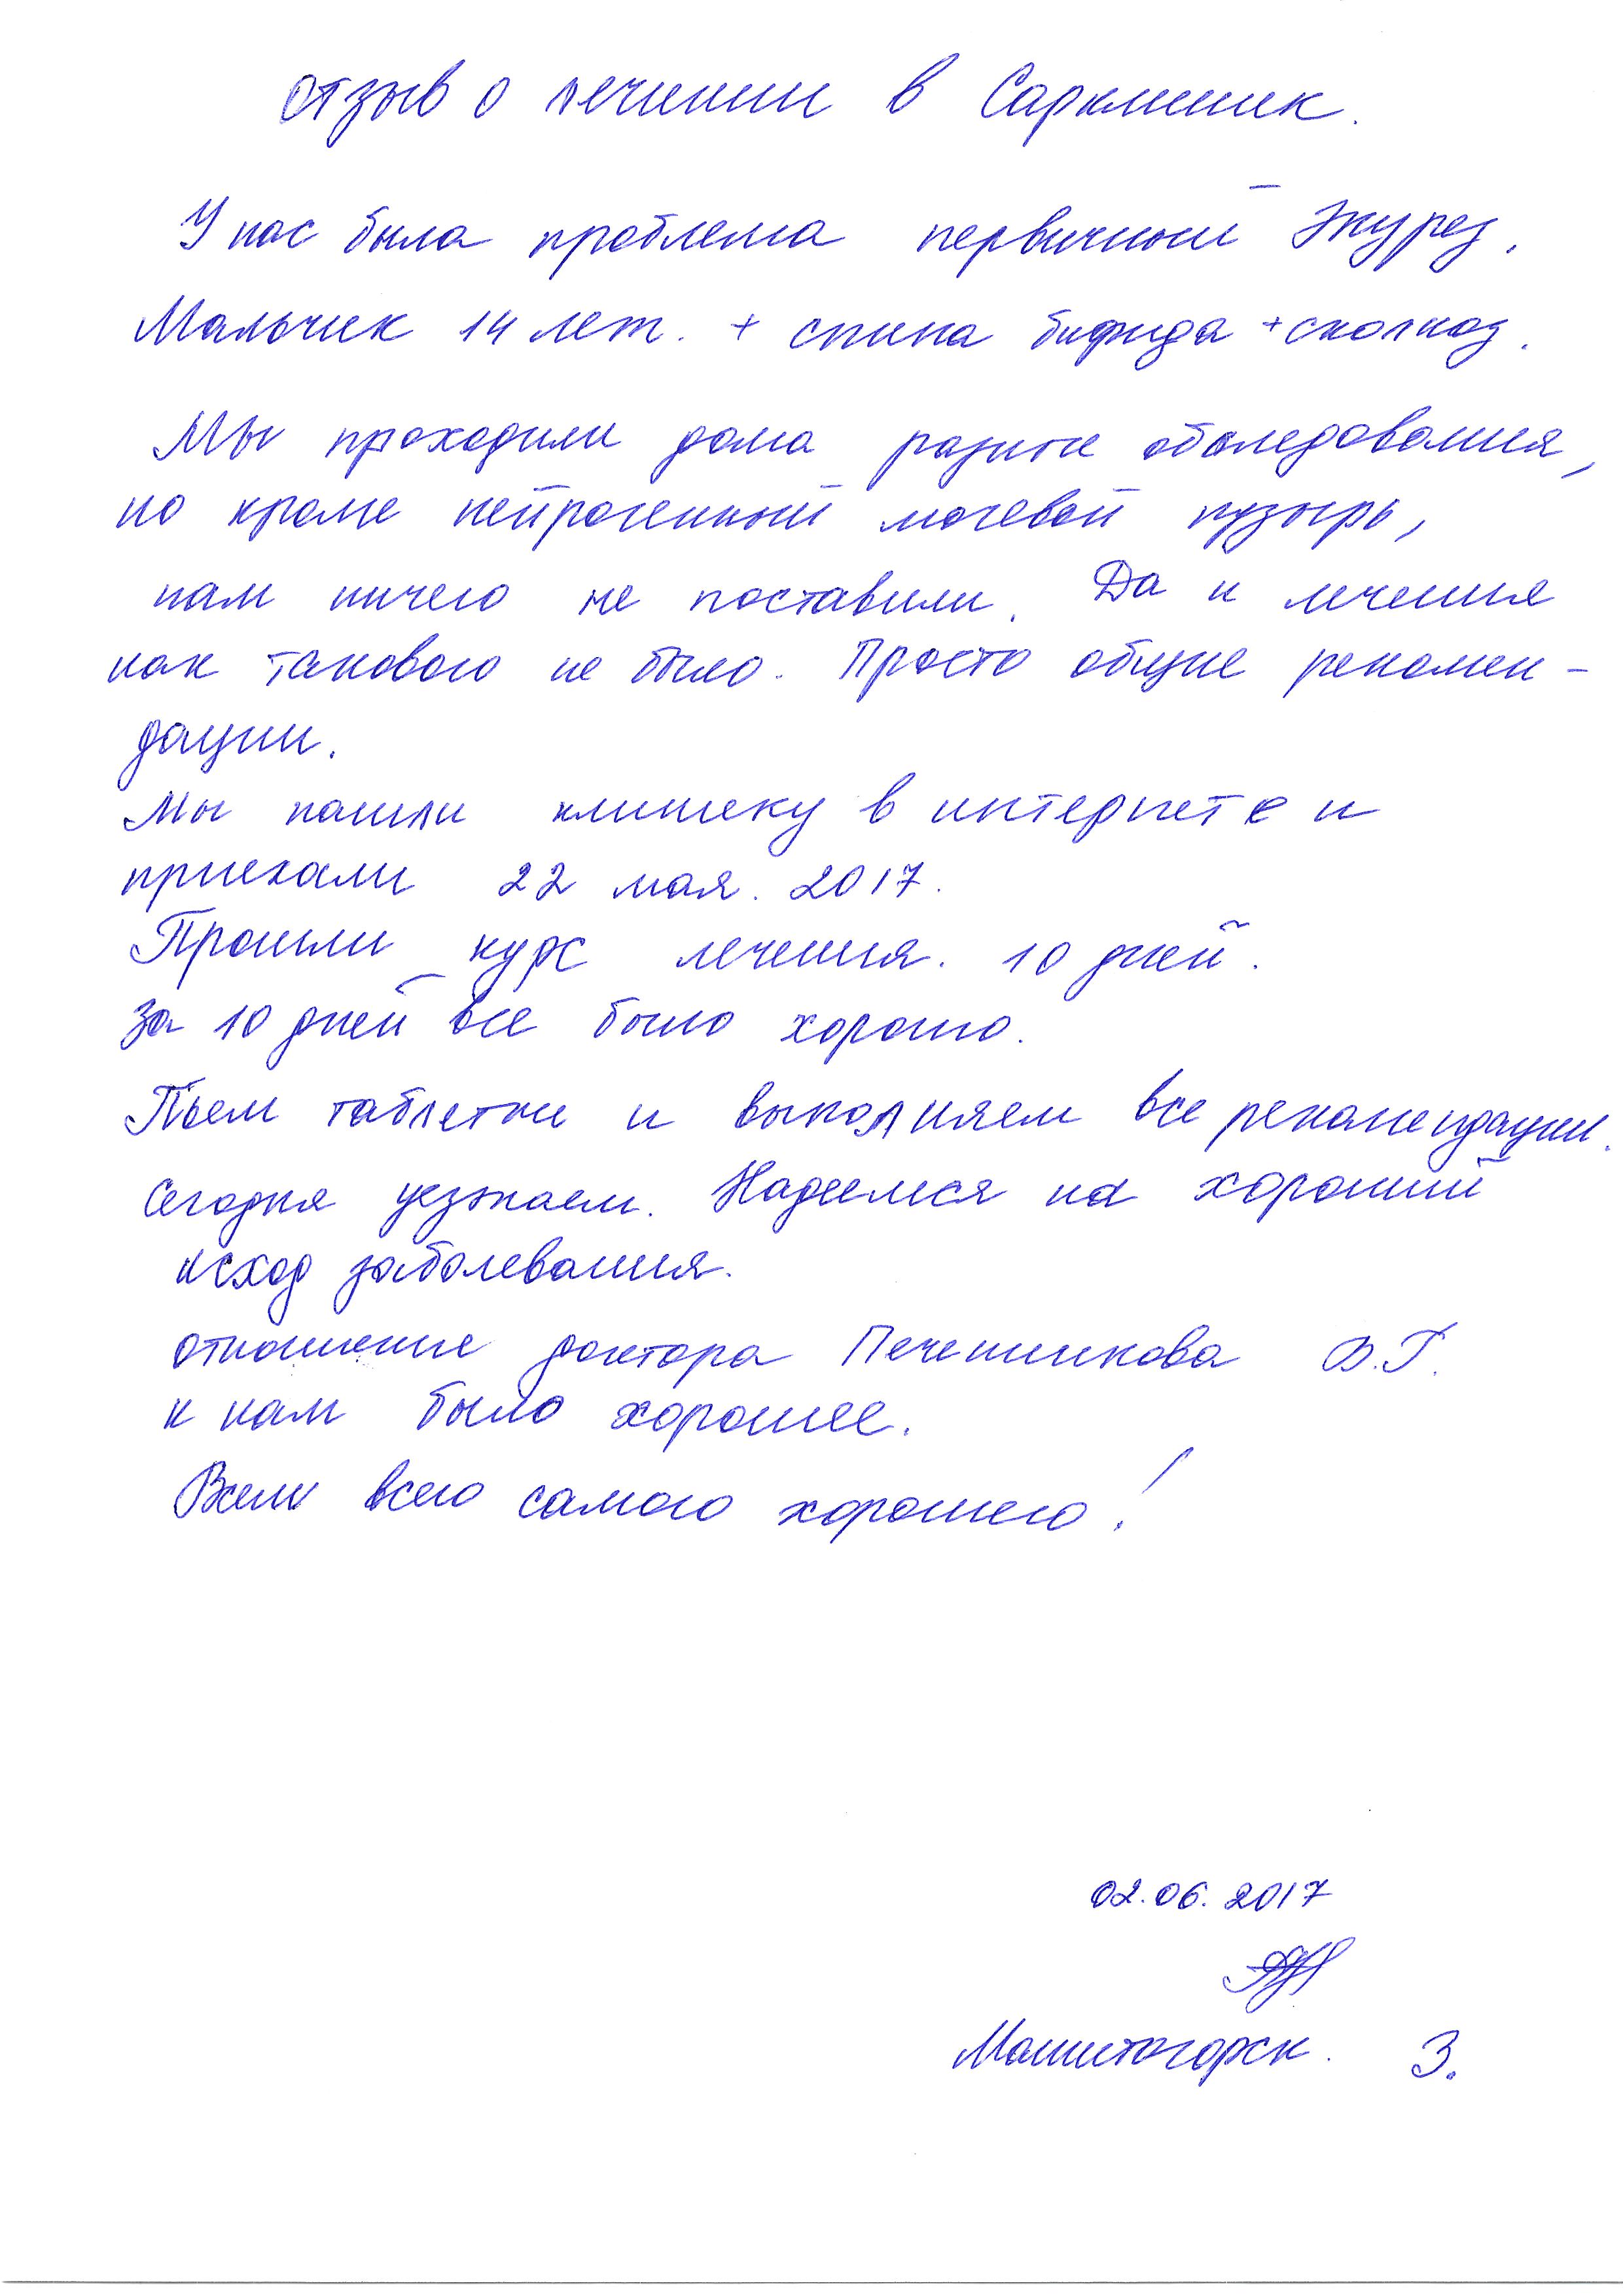 Отзыв о лечении в Сарклиник.
У нас была проблема первичный Энурез.
Мальчик 14 лет. + спина бифида + сколиоз.
Мы проходили дома разные обследования,
но кроме нейрогенный мочевой пузырь,
нам ничего не поставили. Да и лечения
как такового не было. Просто общие рекомен-
дации.
Мы нашли клинику в интернете и
приехали 22 мая. 2017.
Прошли курс лечения. 10 дней.
За 10 дней все было хорошо.
Пьем таблетки и выполняем все рекомендации.
Сегодня уезжаем. Надеемся на хороший
исход заболевания.
Отношение доктора
к нам было хорошее.
Всем всего самого хорошего!
02.06.2017
Магнитогорск. З.